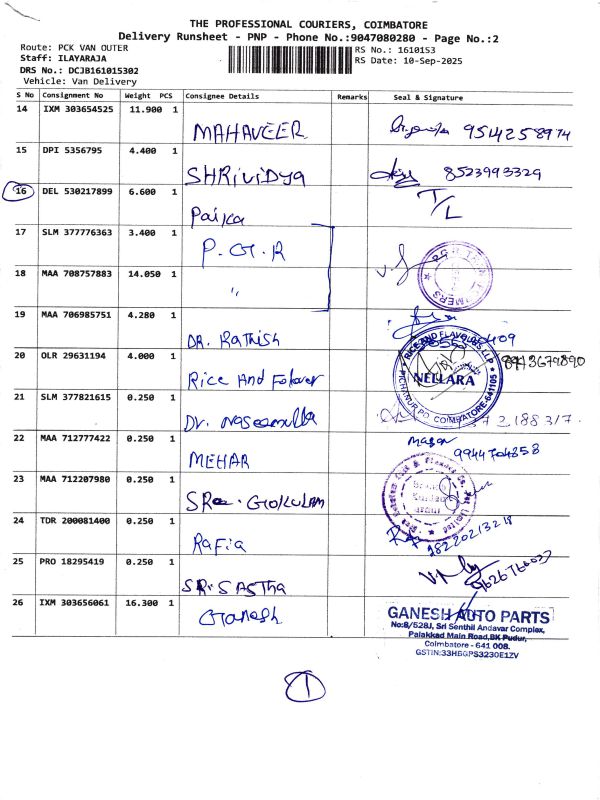 THE PROFESSIONAL COURIERS, COIMBATORE
Delivery Runsheet - PNP - Phone No.:9047080280 - Page No.:2
Route: PCK VAN OUTER
RS No.: 1610153
Staff: ILAYARAJA
RS Date: 10-Sep-2025
DRS No.: DCJB161015302
Vehicle: Van Delivery
S No Consignment No Weight PCS Consignee Details Remarks Seal & Signature
14 IXM 303654525 11.900 1
MAHAVEER 9514258974
15 DPI 5356795 4.400 1
SHRIVIDYA 8523993329
16 DEL 530217899 6.600 1
Paika T/L
17 SLM 377776363 3.400 1
P.G.R
18 MAA 708757883 14.050 1
"
19 MAA 706985751 4.280 1
DR. Rathish
20 OLR 29631194 4.000 1
RICE AND FLAVOURS LLP
NELLARA
PICHANUR PO. COIMBATORE-641105
Rice And Folover
21 SLM 377821615 0.250 1
Dr. Naseemulla
22 MAA 712777422 0.250 1
MEHAR 9944704858
23 MAA 712207980 0.250 1
SRee. GOKULAM
24 TDR 200081400 0.250 1
Rafia
25 PRO 18295419 0.250 1
SRi SASTHA
26 IXM 303656061 16.300 1
Ganesh
GANESH AUTO PARTS
No:8/528J, Sri Senthil Andavar Complex,
Palakkad Main Road,BK Pudur,
Coimbatore - 641 008.
GSTIN:33HBGPS3230E1ZV
1